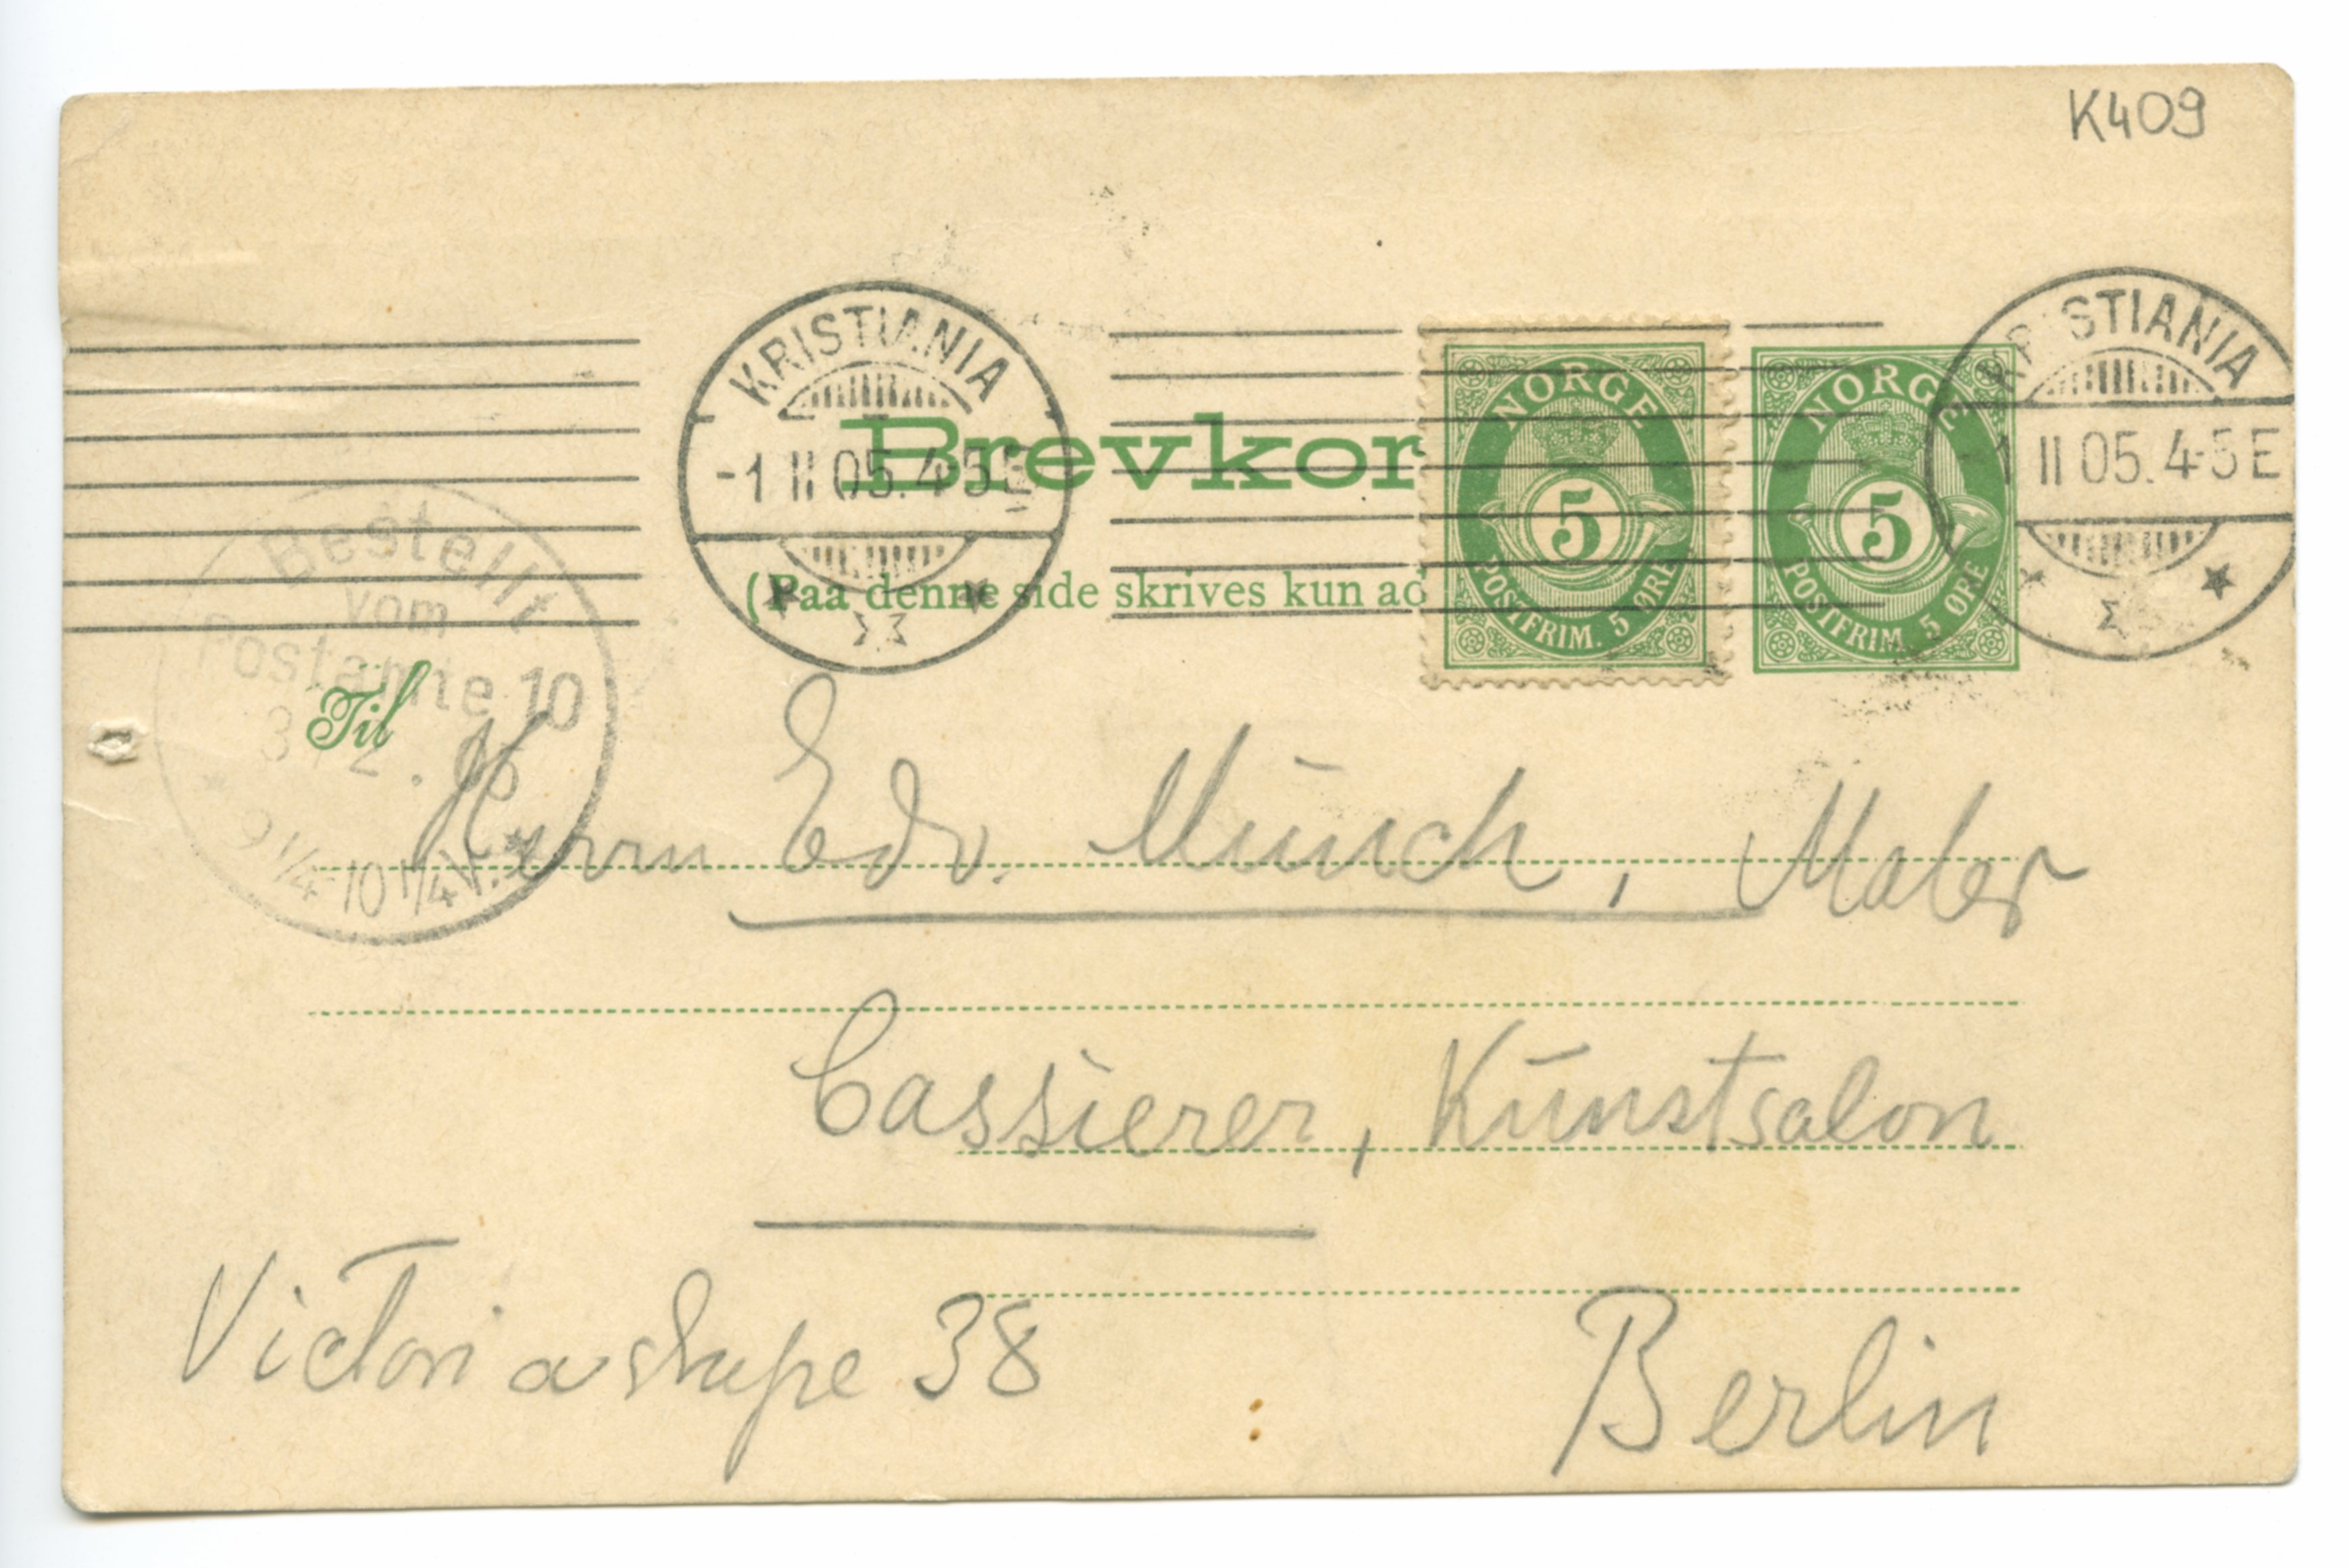 K409
KRISTIANIA
-1 II 05. 4-5 E
Brevkor
(Paa denne side skrives kun ad
NORGE
5
POSTFRIM. 5 ØRE
NORGE
5
POSTFRIM. 5 ØRE
KRISTIANIA
1 II 05. 4-5 E
Bestellt
vom
Postamte 10
3 / 2. 05
9 1/4-10 1/4 V.
Til
Herrn Edv. Munch, Maler
Cassierer, Kunstsalon
Victoriastrasse 38
Berlin